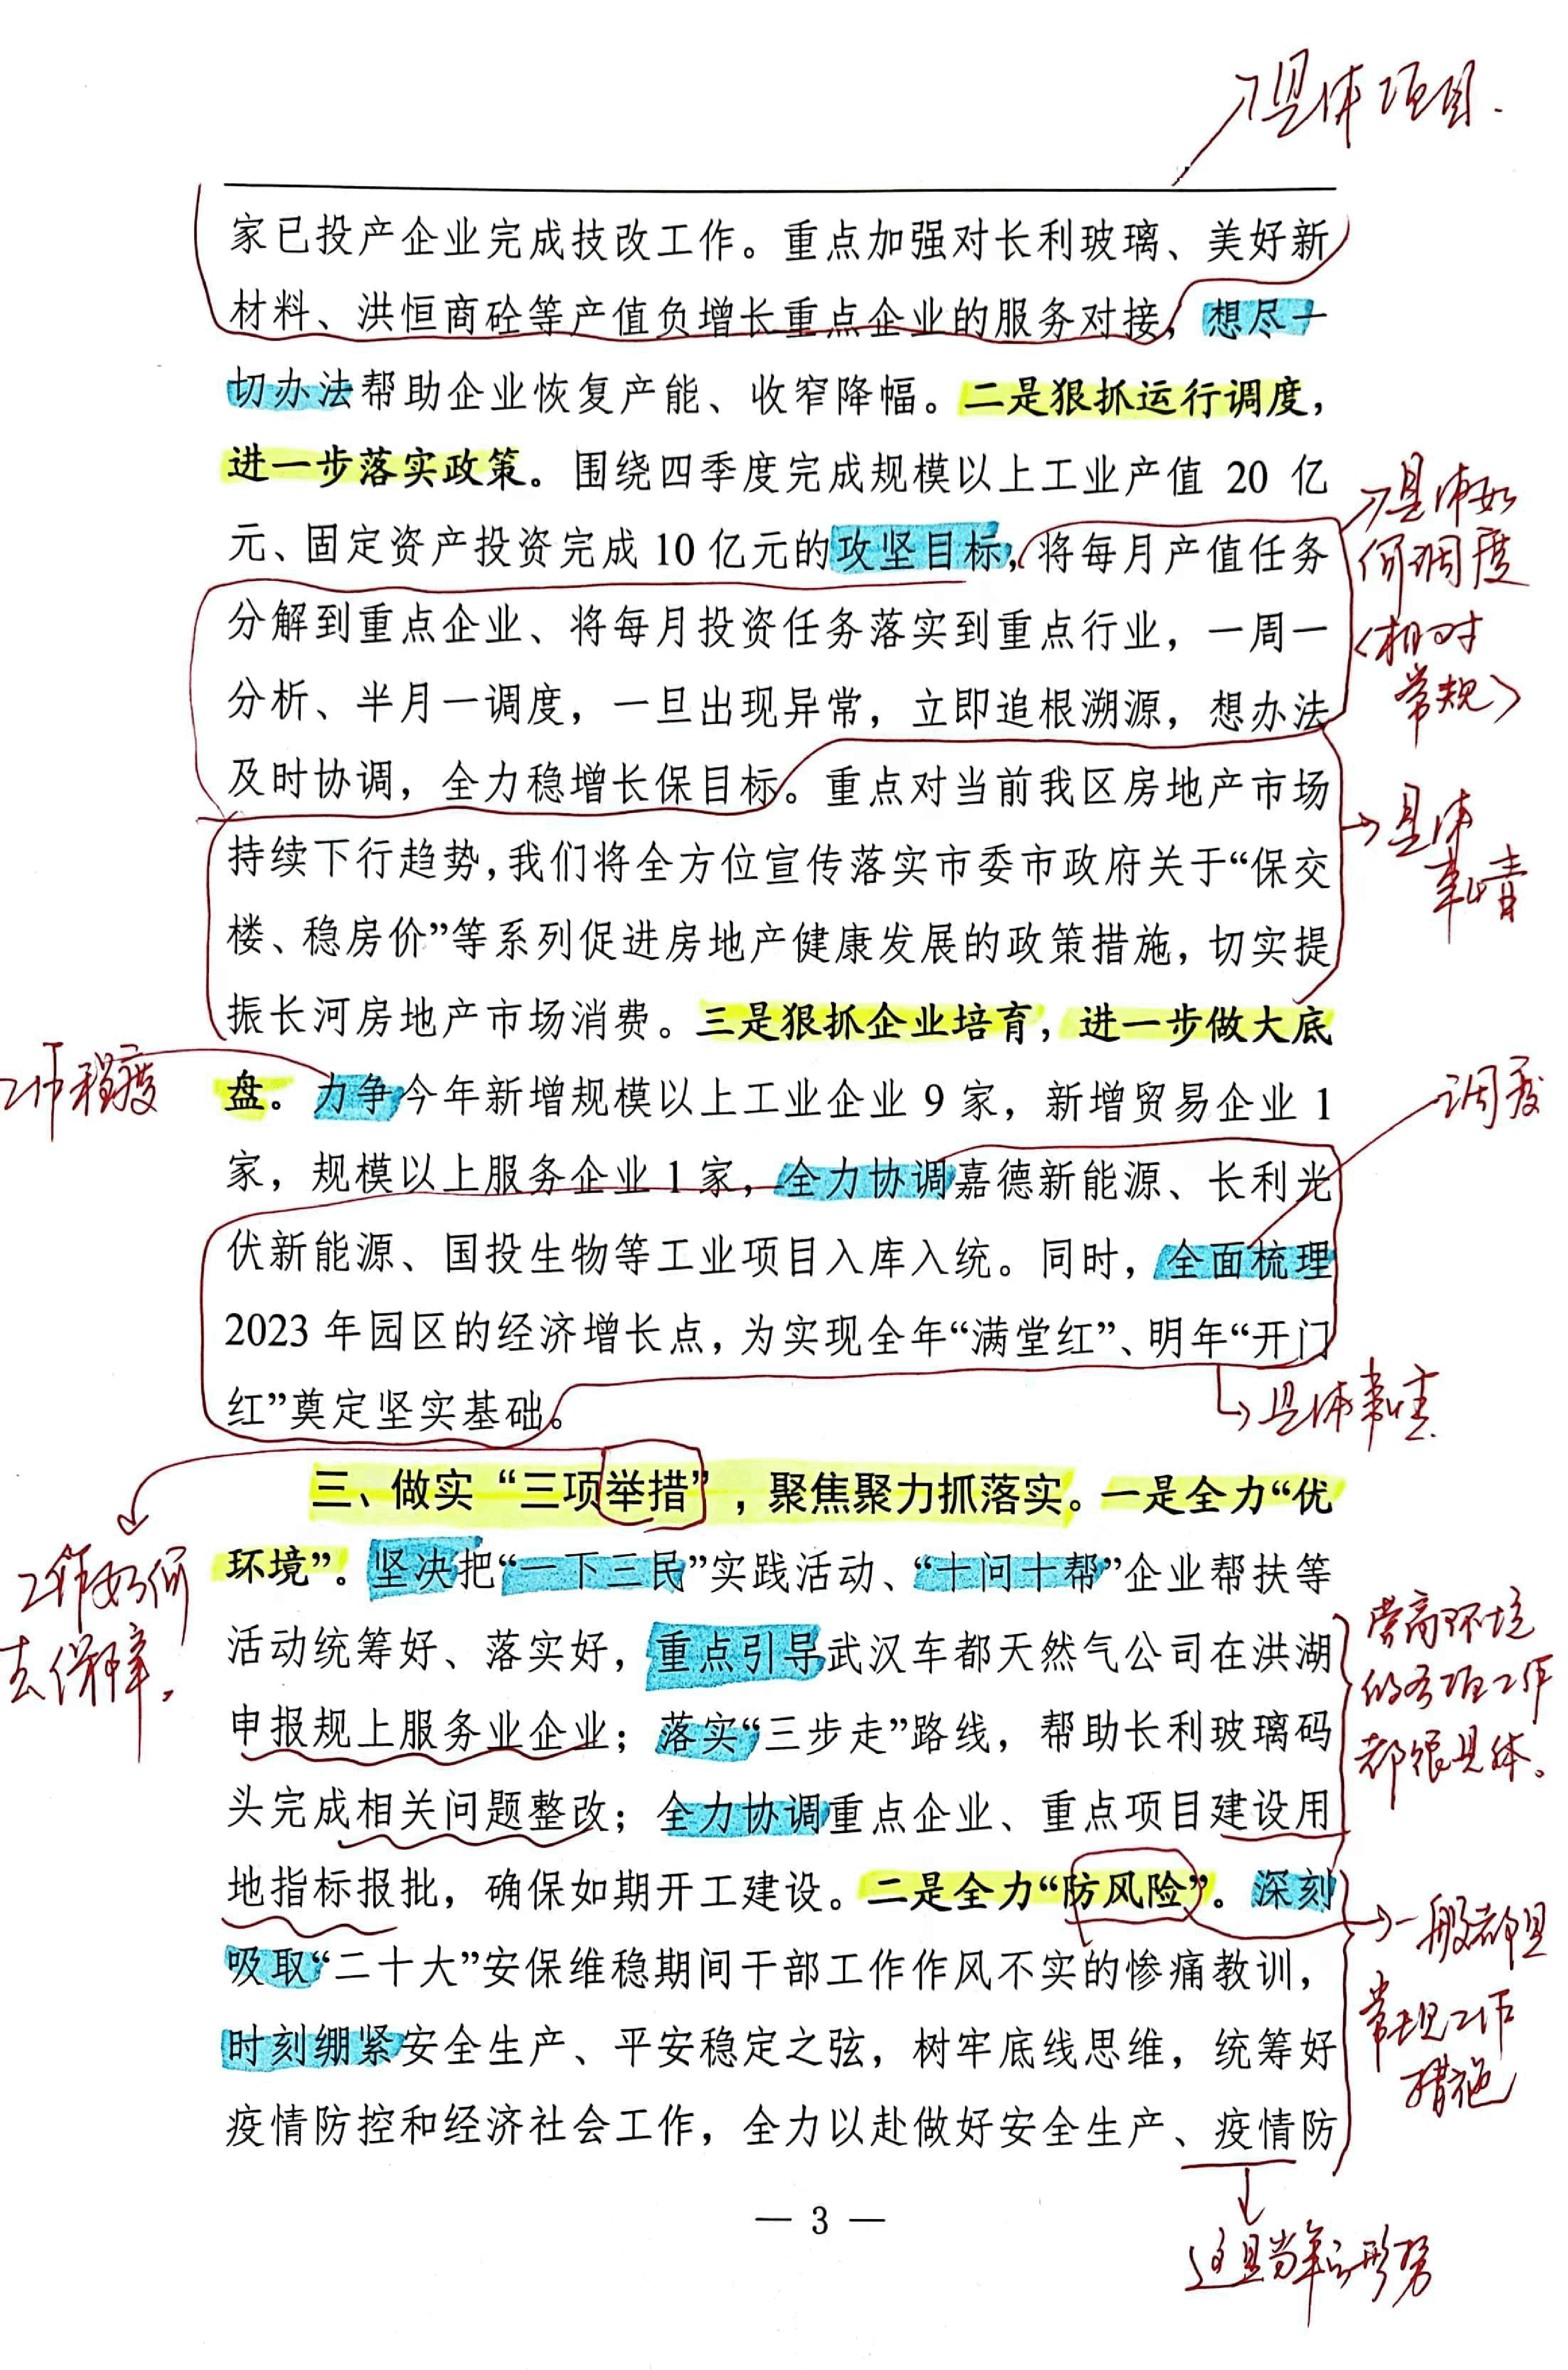 具体项目.
家已投产企业完成技改工作。重点加强对长利玻璃、美好新
材料、洪恒商砼等产值负增长重点企业的服务对接，想尽一
切办法帮助企业恢复产能、收窄降幅。二是狠抓运行调度，
进一步落实政策。围绕四季度完成规模以上工业产值 20 亿
元、固定资产投资完成 10 亿元的攻坚目标，将每月产值任务
分解到重点企业、将每月投资任务落实到重点行业，一周一
分析、半月一调度，一旦出现异常，立即追根溯源，想办法
及时协调，全力稳增长保目标。重点对当前我区房地产市场
持续下行趋势，我们将全方位宣传落实市委市政府关于“保交
楼、稳房价”等系列促进房地产健康发展的政策措施，切实提
振长河房地产市场消费。三是狠抓企业培育，进一步做大底
盘。力争今年新增规模以上工业企业 9 家，新增贸易企业 1
家，规模以上服务企业 1 家，全力协调嘉德新能源、长利光
伏新能源、国投生物等工业项目入库入统。同时，全面梳理
2023 年园区的经济增长点，为实现全年“满堂红”、明年“开门
红”奠定坚实基础。
三、做实“三项举措”，聚焦聚力抓落实。一是全力“优
环境”。坚决把“一下三民”实践活动、“十问十帮”企业帮扶等
活动统筹好、落实好，重点引导武汉车都天然气公司在洪湖
申报规上服务业企业；落实“三步走”路线，帮助长利玻璃码
头完成相关问题整改；全力协调重点企业、重点项目建设用
地指标报批，确保如期开工建设。二是全力“防风险”。深刻
吸取“二十大”安保维稳期间干部工作作风不实的惨痛教训，
时刻绷紧安全生产、平安稳定之弦，树牢底线思维，统筹好
疫情防控和经济社会工作，全力以赴做好安全生产、疫情防
— 3 —
具体如
何调度
<相对
常规>
具体
事情
工作程度
调度
具体事情
工作如何
去保障.
营商环境
的各项工作
都很具体。
一般都是
常规工作
措施
这是当年的形势